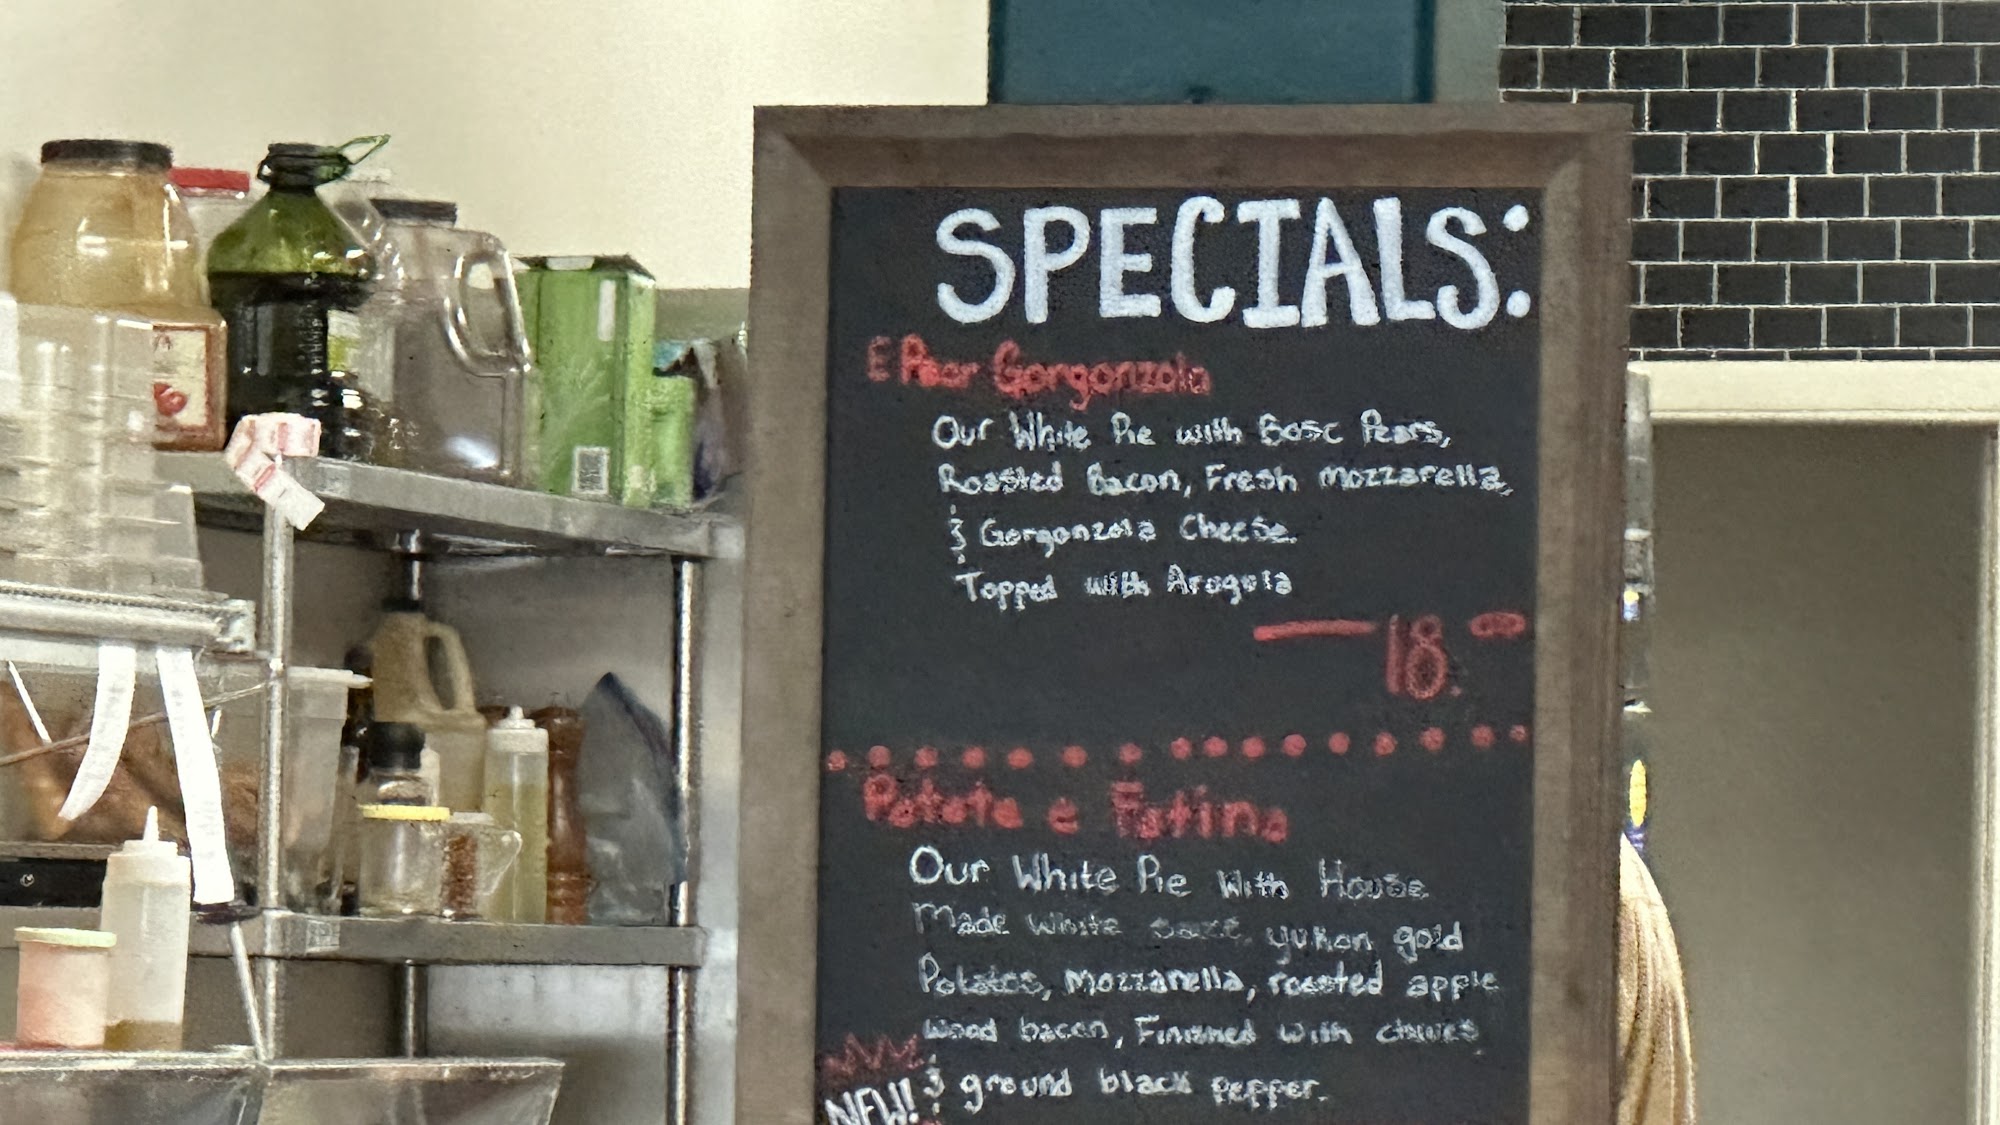 SPECIALS:
E Pear Gorgonzola
Our White Pie with Bosc Pears,
Roasted Bacon, Fresh mozzarella,
& Gorgonzola Cheese.
Topped with Arugula
—18.—
Potato e
Our White Pie With House
Made White sauce, yukon gold
Potatos, Mozzarella, roasted apple
wood bacon, Finished with chives
& ground black pepper.
NEW!